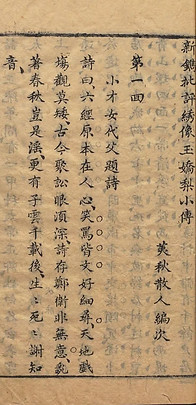 新鐫批評綉像玉嬌梨小傳
荑秋散人編次
第一回
小才女代父題詩
詩曰六經原本在人心笑罵皆文好細尋天地戲
塲觀莫矮古今聚訟眼須深詩存鄭衛非無意亂
著春秋豈是滛更有子雲千載後生〻死〻謝知
音